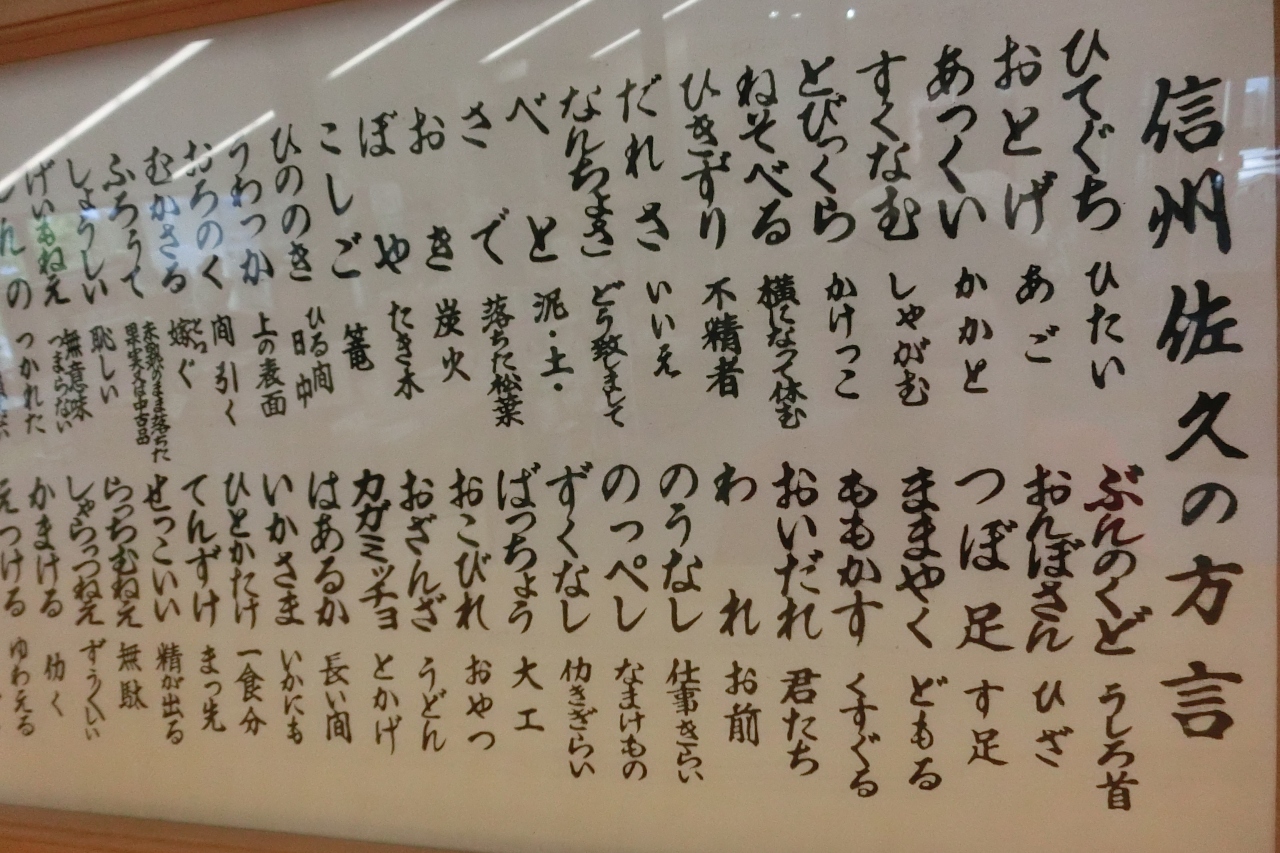 信州佐久の方言
ひてぐち ひたい
おとげ あご
あつくい かかと
すくなむ しゃがむ
とびっくら かけっこ
ねそべる 横になって休む
ひきずり 不精者
だれさ いいえ
なんちょさ どう致しまして
べと 泥・土・
さで 落ちた松葉
おき 炭火
ぼや たき木
こしご 篭
ひのの き ひる間 日中
うわっか 上の表面
おろのく 間引く
むかさる 嫁ぐ とつ
ふちうて 未熟のまま落ちた果実又は中古品
しょうしい 恥しい
げいもねえ 無意味 つまらない
んの つかれた
ぶんのくど うしろ首
おんぼさん ひざ
つぼ足 す足
ままやく どもる
ももかす くすぐる
おいだれ 君たち
われ お前
のうなし 仕事きらい
のっぺし なまけもの
ずくなし 仂きぎらい
ばっちょう 大工
おこびれ おやつ
おざんざ うどん
カガミッチョ とかげ
はあるか 長い間
いかさま いかにも
ひとかたけ 一食分
てんずけ まっ先
せっこいい 精が出る
らっちむねえ 無駄
しゃらっつねえ ずうくいい
かまける 仂く
えつける ゆわえる